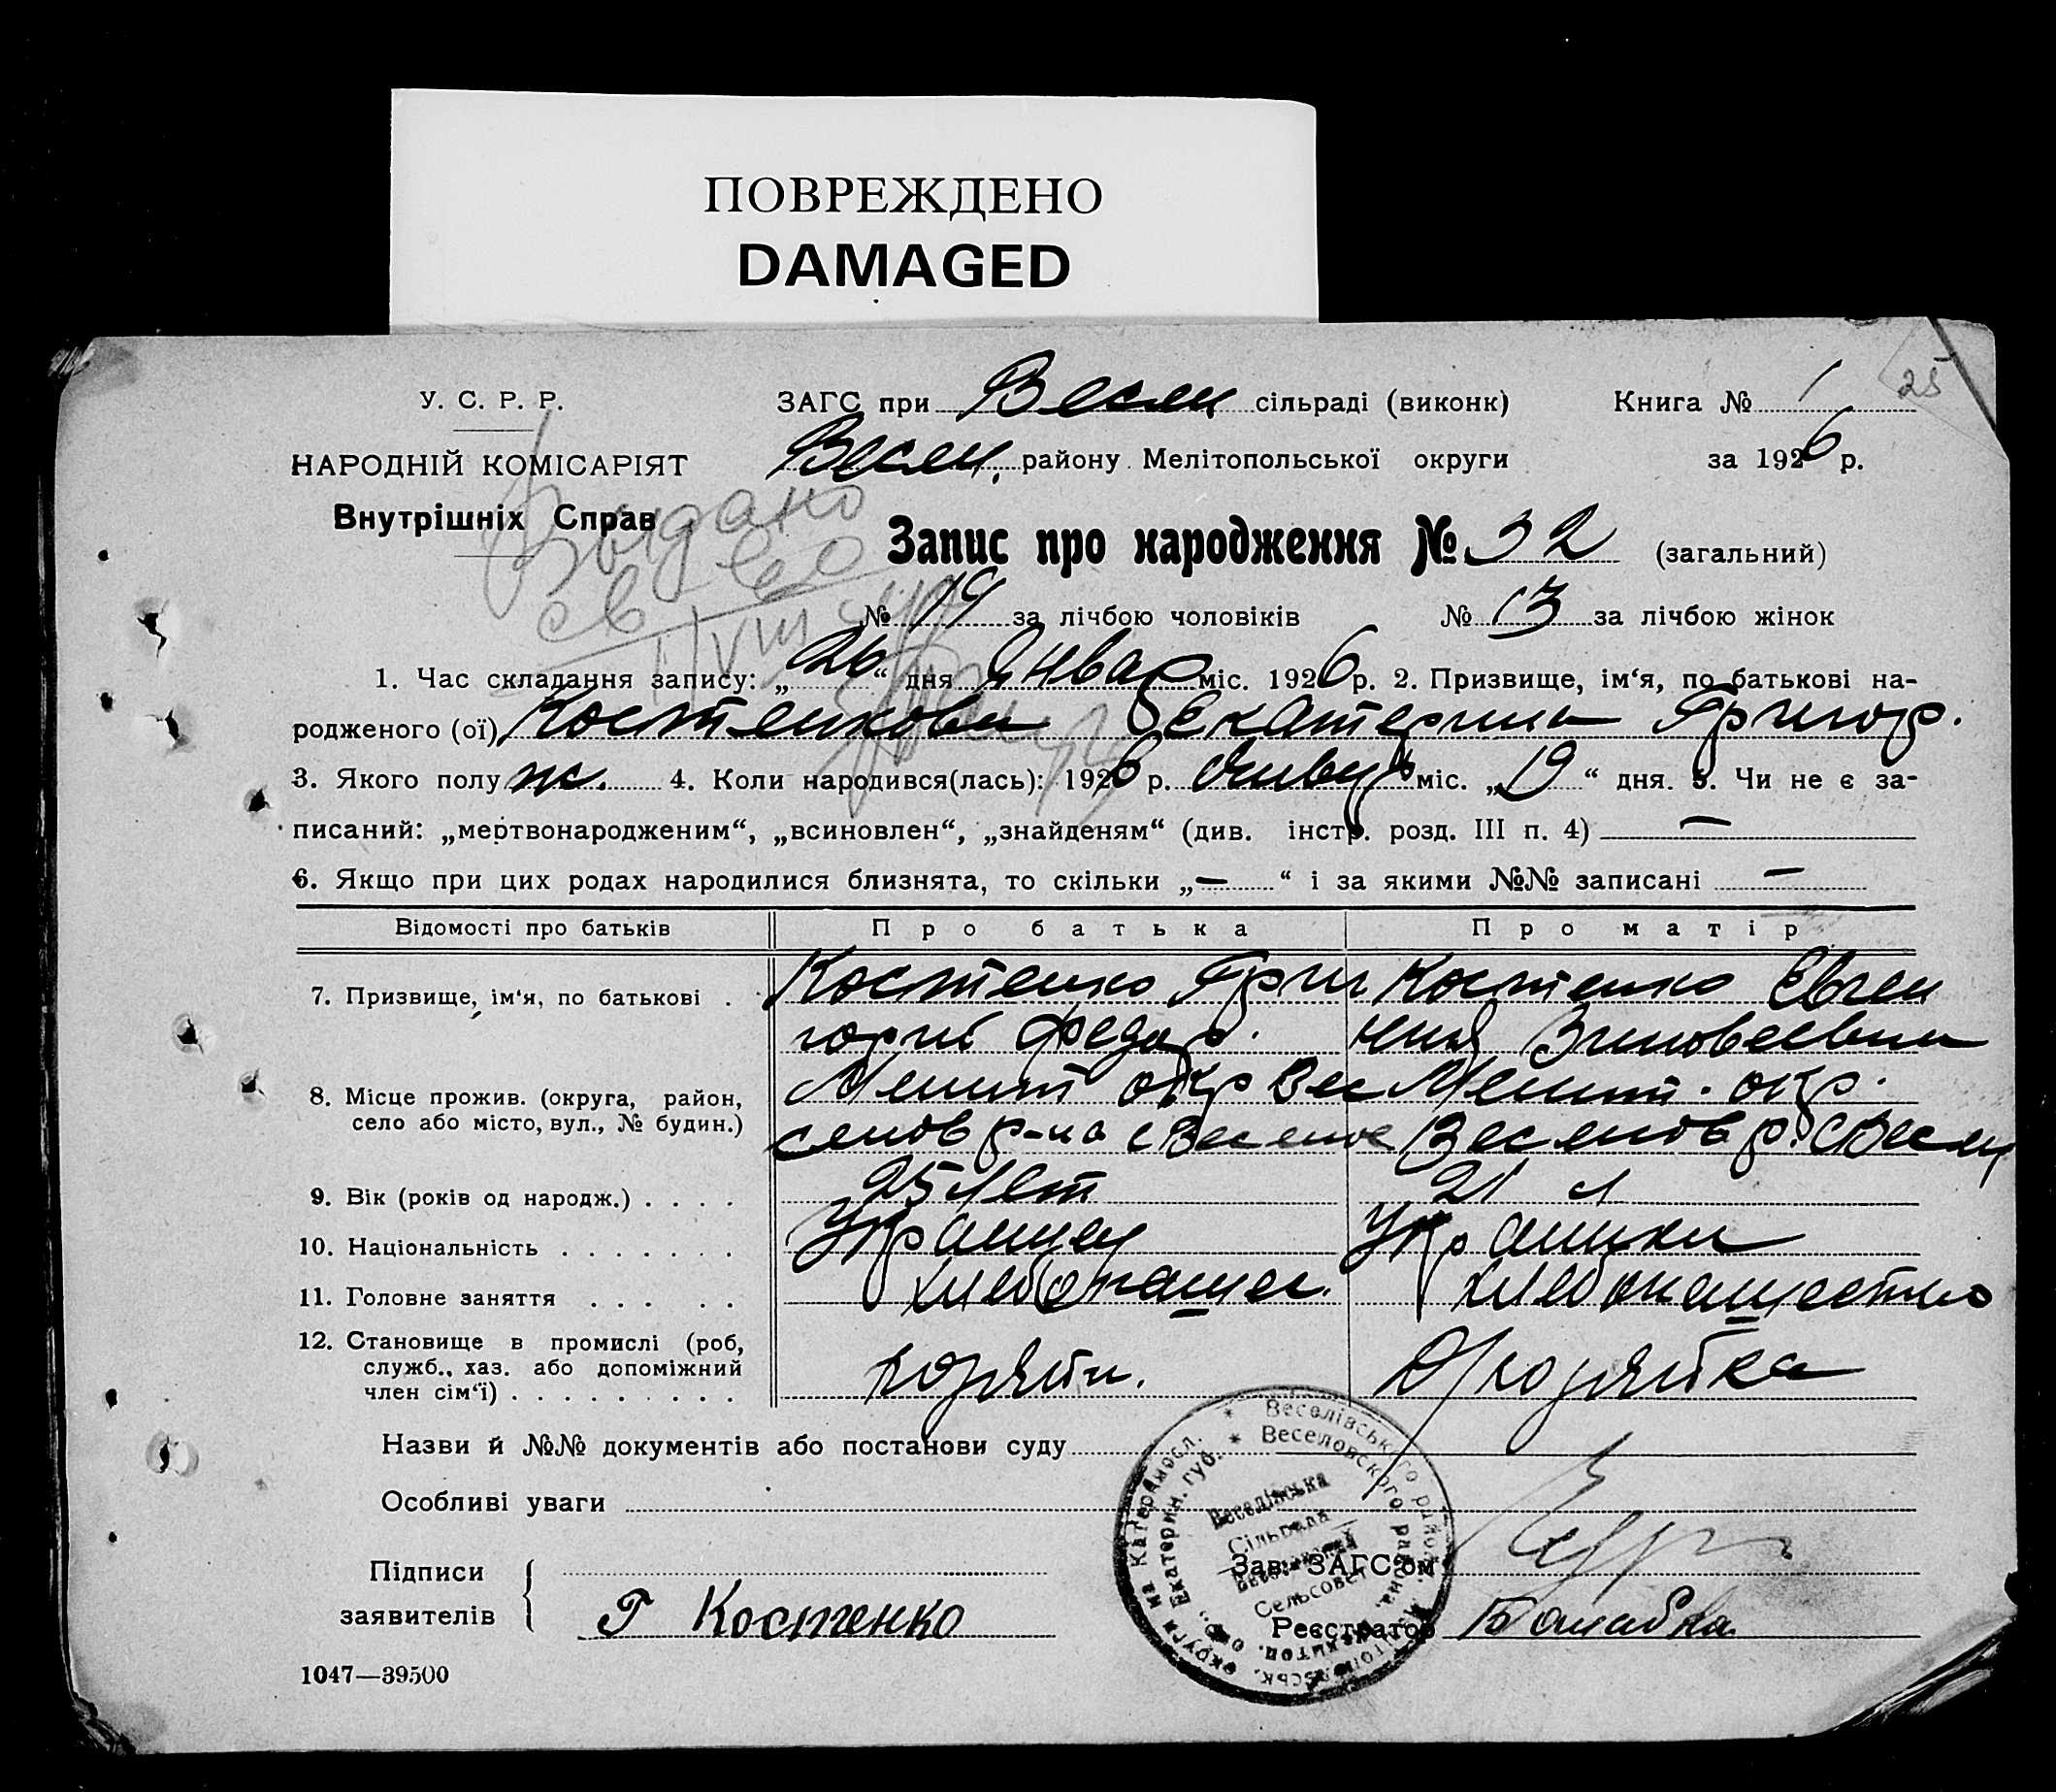 ПОВРЕЖДЕНО
DAMAGED
25
У. С. Р. Р.
ЗАГС при Весел сільраді (виконк)
Книга № 1
НАРОДНІЙ КОМІСАРІЯТ
Весел. району Мелітопольської округи
за 1926 р.
Внутрішніх Справ
Выдано
св во
Запис про народження № 32 (загальний)
№ 19 за лічбою чоловіків № 13 за лічбою жінок
1. Час складання запису: „26“ дня Январ міс. 1926 р. 2. Призвище, ім‘я, по батькові на-
родженого (ої) Костенкова Екатерина Григор.
3. Якого полу ж. 4. Коли народився(лась): 1926 р. Январ міс. „19“ дня. 5. Чи не є за-
писаний: „мертвонародженим“, „всиновлен“, „знайденям“ (див. інстр. розд. III п. 4) —
6. Якщо при цих родах народилися близнята, то скільки „—“ і за якими №№ записані —
Відомості про батьків Про батька Про матір
7. Призвище, ім‘я, по батькові . Костенко Гри Костенко Евген
горий Федор. ния Зиновеевна
8. Місце прожив. (округа, район, Мелит окр Вес Мелит. окр.
село або місто, вул., № будин.) еловр-на с Веселое Веселов р. с Весел
9. Вік (років од народж.) . . . . 25 лет 21 л
10. Національність . . . . . . . Украинец Украинка
11. Головне заняття . . . . . хлебопашец. хлебопашество
12. Становище в промислі (роб,
служб., хаз. або допоміжний
член сім‘ї) . . . . . . . . . хозяин. Хозяйка
Назви й №№ документів або постанови суду
Особливі уваги
Веселівська
Сільрада
Веселовский
Сельсовет
Підписи
заявителів
Г Костенко
Зав. ЗАГС‘ом
Реєстратор
1047—39500